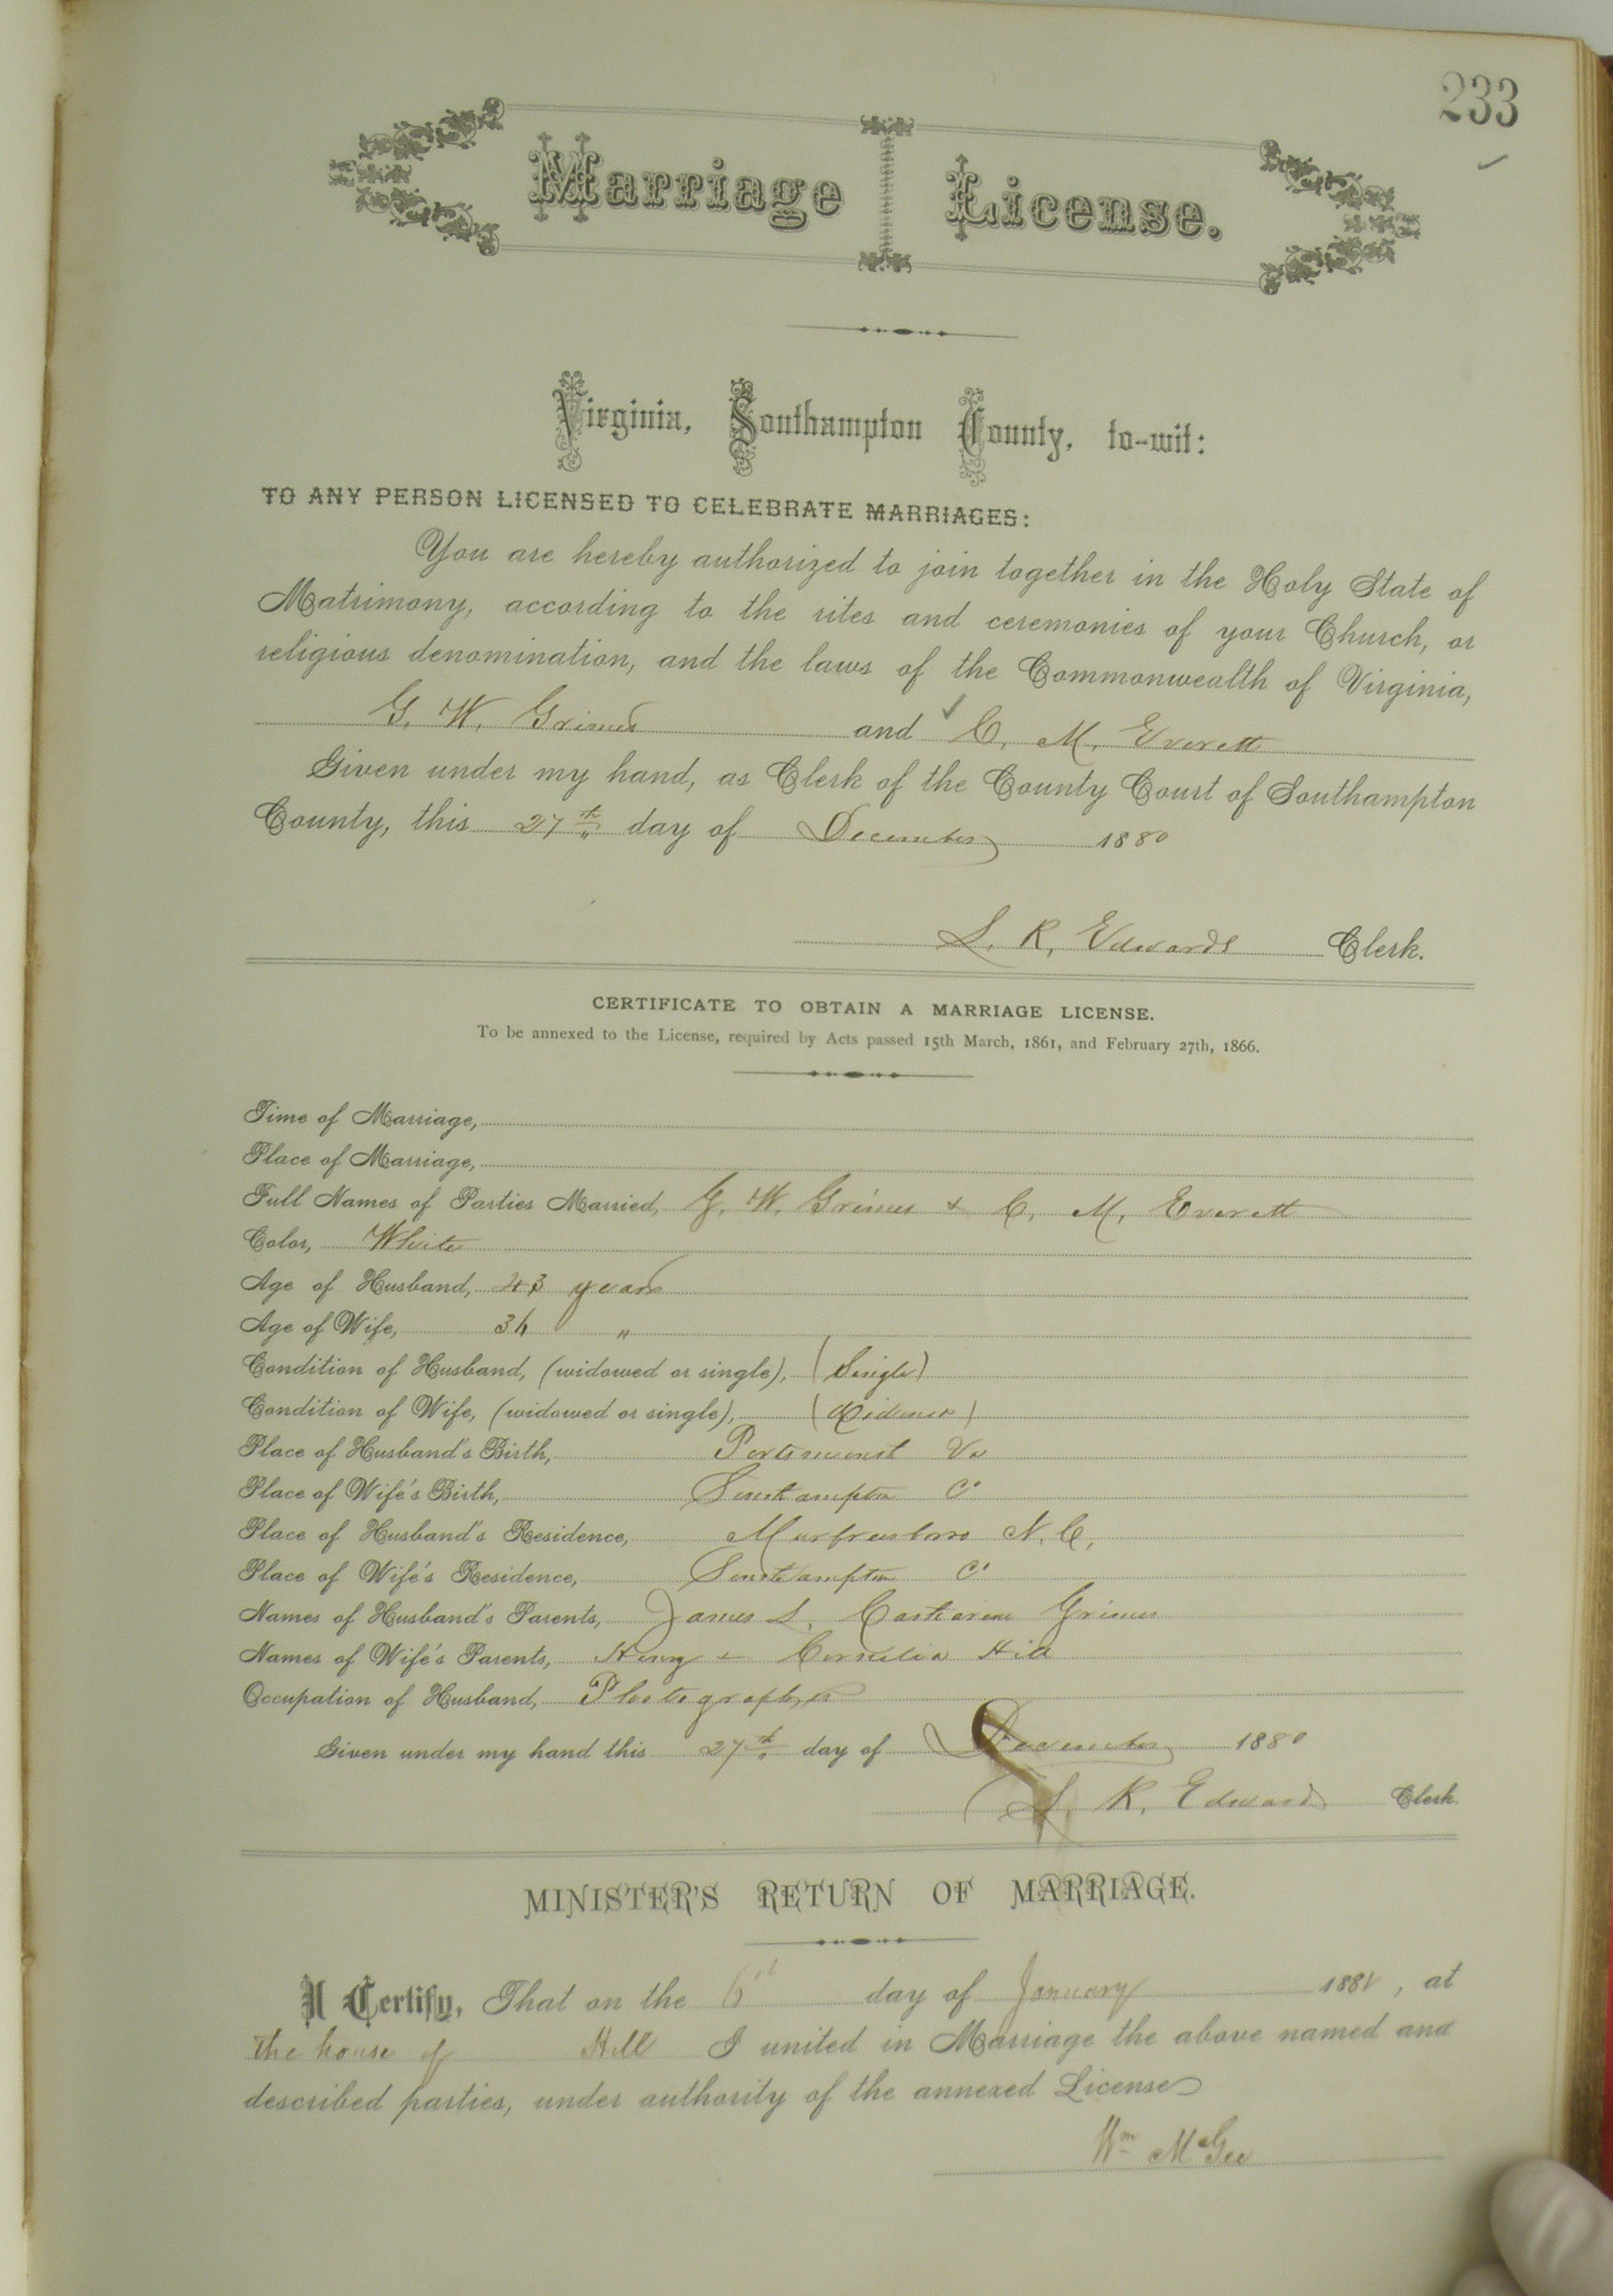 233
Marriage License.
Virginia, Southampton County, to-wit:
TO ANY PERSON LICENSED TO CELEBRATE MARRIAGES:
You are hereby authorized to join together in the Holy State of
Matrimony, according to the rites and ceremonies of your Church, or
religious denomination, and the laws of the Commonwealth of Virginia,
G. W. Grimes and C. M. Everett
Given under my hand, as Clerk of the County Court of Southampton
County, this 27th day of December 1880
L. R. Edwards Clerk.
CERTIFICATE TO OBTAIN A MARRIAGE LICENSE.
To be annexed to the License, required by Acts passed 15th March, 1861, and February 27th, 1866.
Time of Marriage,
Place of Marriage,
Full Names of Parties Married, G. W. Grimes & C. M. Everett
Color, White
Age of Husband, 43 years
Age of Wife, "
Condition of Husband, (widowed or single), (Single)
Condition of Wife, (widowed or single), (Widower)
Place of Husband's Birth, Portsmouth Va
Place of Wife's Birth, Southampton Co
Place of Husband's Residence, Murfreesboro N. C.
Place of Wife's Residence, Southampton Co
Names of Husband's Parents, James L. Grimes
Names of Wife's Parents, Henry & Cornelia Hill
Occupation of Husband, Photographer
Given under my hand this 27th day of December 1880
L. R. Edwards Clerk.
MINISTER'S RETURN OF MARRIAGE.
I Certify, That on the day of January 1881, at
the house of Hill I united in Marriage the above named and
described parties, under authority of the annexed License
Wm McGee